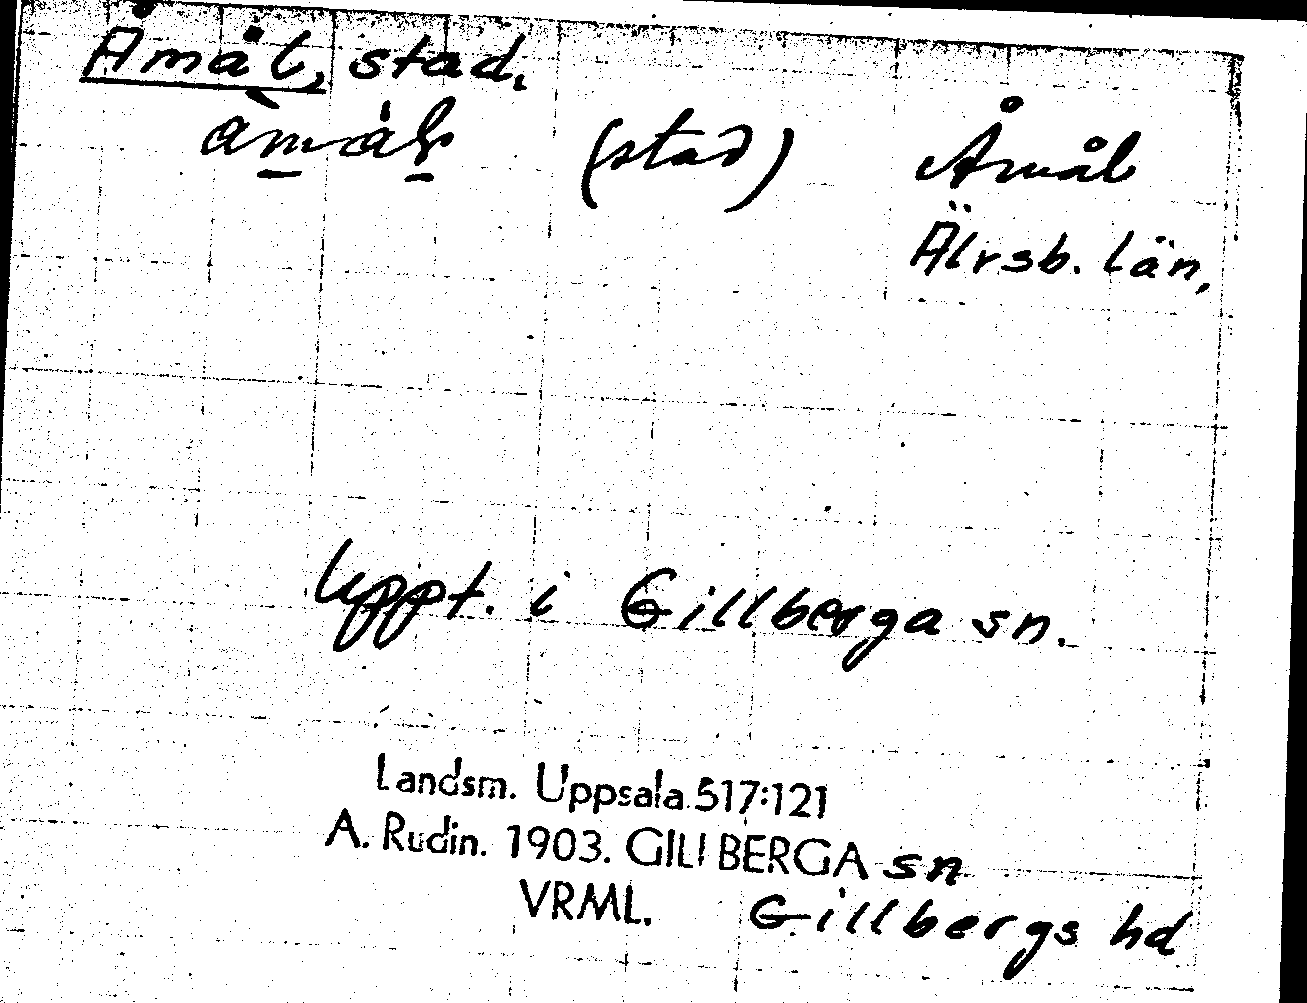 Åmål, stad.
(stad) Åmål
Älvsb. län,
Uppt. i Gillberga sn.
Landsm. Uppsala 517:121
A. Rudin. 1903. GILLBERGA sn
VRML. Gillbergs hd